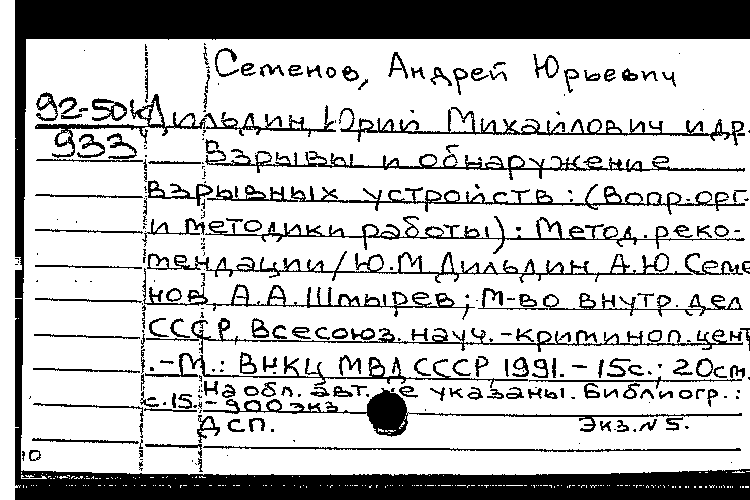 Семенов, Андрей Юрьевич
92-50К Дильдин, Юрий Михайлович и др.
933 Взрывы и обнаружение
взрывных устройств: (Вопр. орг.
и методики работы): Метод. реко-
мендации / Ю.М. Дильдин, А.Ю. Семе
нов, А.А. Шмырев; М-во внутр. дел
СССР, Всесоюз. науч.-криминол. цент
.-М.: ВНКЦ МВД СССР, 1991. - 15с.; 20см.
На обл. авт. не указаны. Библиогр.:
с. 15. - 900 экз.
ДСП. Экз. N 5.
10